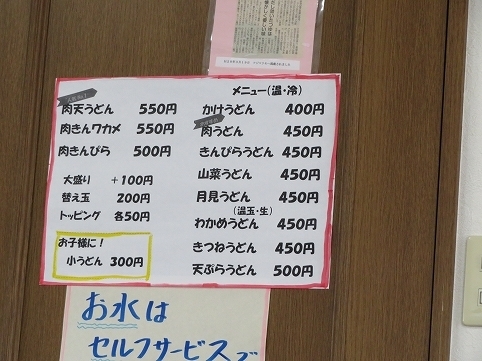 メニュー(温・冷)
肉天うどん 550円
肉きんワカメ 550円
肉きんぴら 500円
大盛り +100円
替え玉 200円
トッピング 各50円
お子様に!
小うどん 300円
かけうどん 400円
肉うどん 450円
きんぴらうどん 450円
山菜うどん 450円
月見うどん 450円
(温玉・生)
わかめうどん 450円
きつねうどん 450円
天ぷらうどん 500円
お水は
セルフサービスで